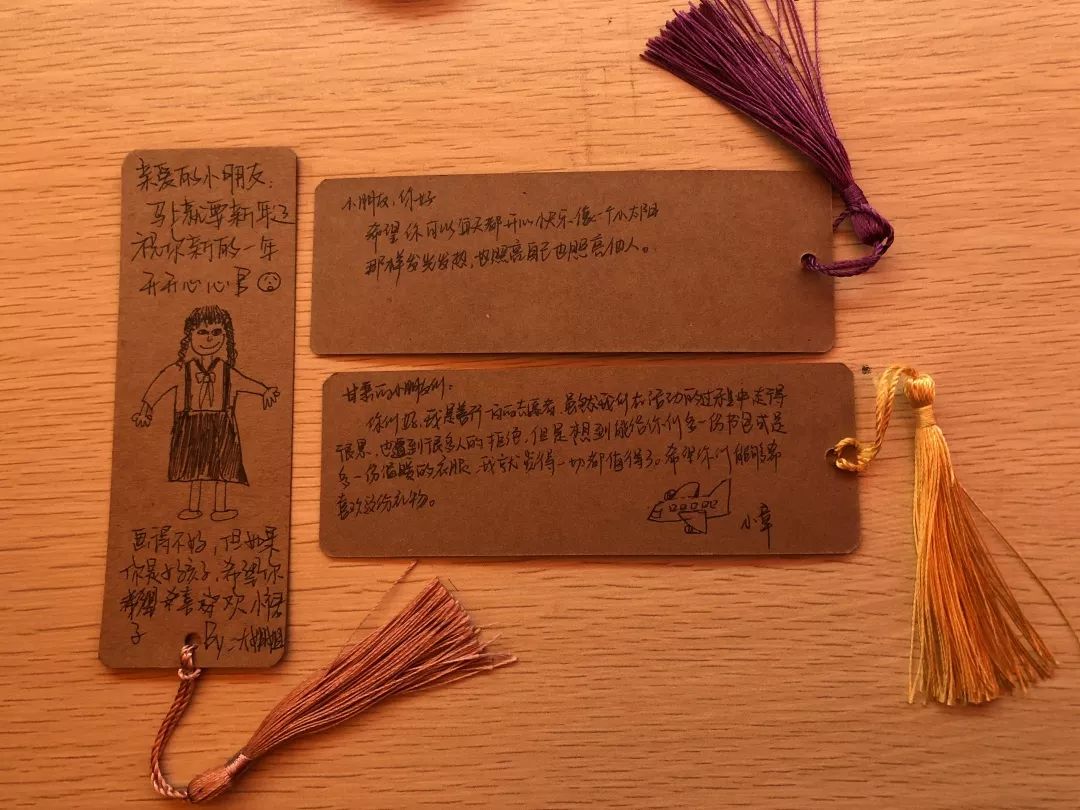 亲爱的小朋友:
马上就要新年了
祝你新的一年
开开心心
画得不好,但如果
你是好孩子,希望你
喜欢小裙
子
By:大姐姐
小朋友,你好
希望你可以每天都开心快乐像一个小太阳
那样发光发热,也照亮自己也照亮他人。
甘肃的小朋友们:
你们好,我是善行100的志愿者,虽然我们在活动的过程中走得
很累,也遭到很多人的拒绝,但是想到能给你们多一份书包或是
多一份温暖的衣服,我就觉得一切都值得了。希望你们能够
喜欢这份礼物。
小章